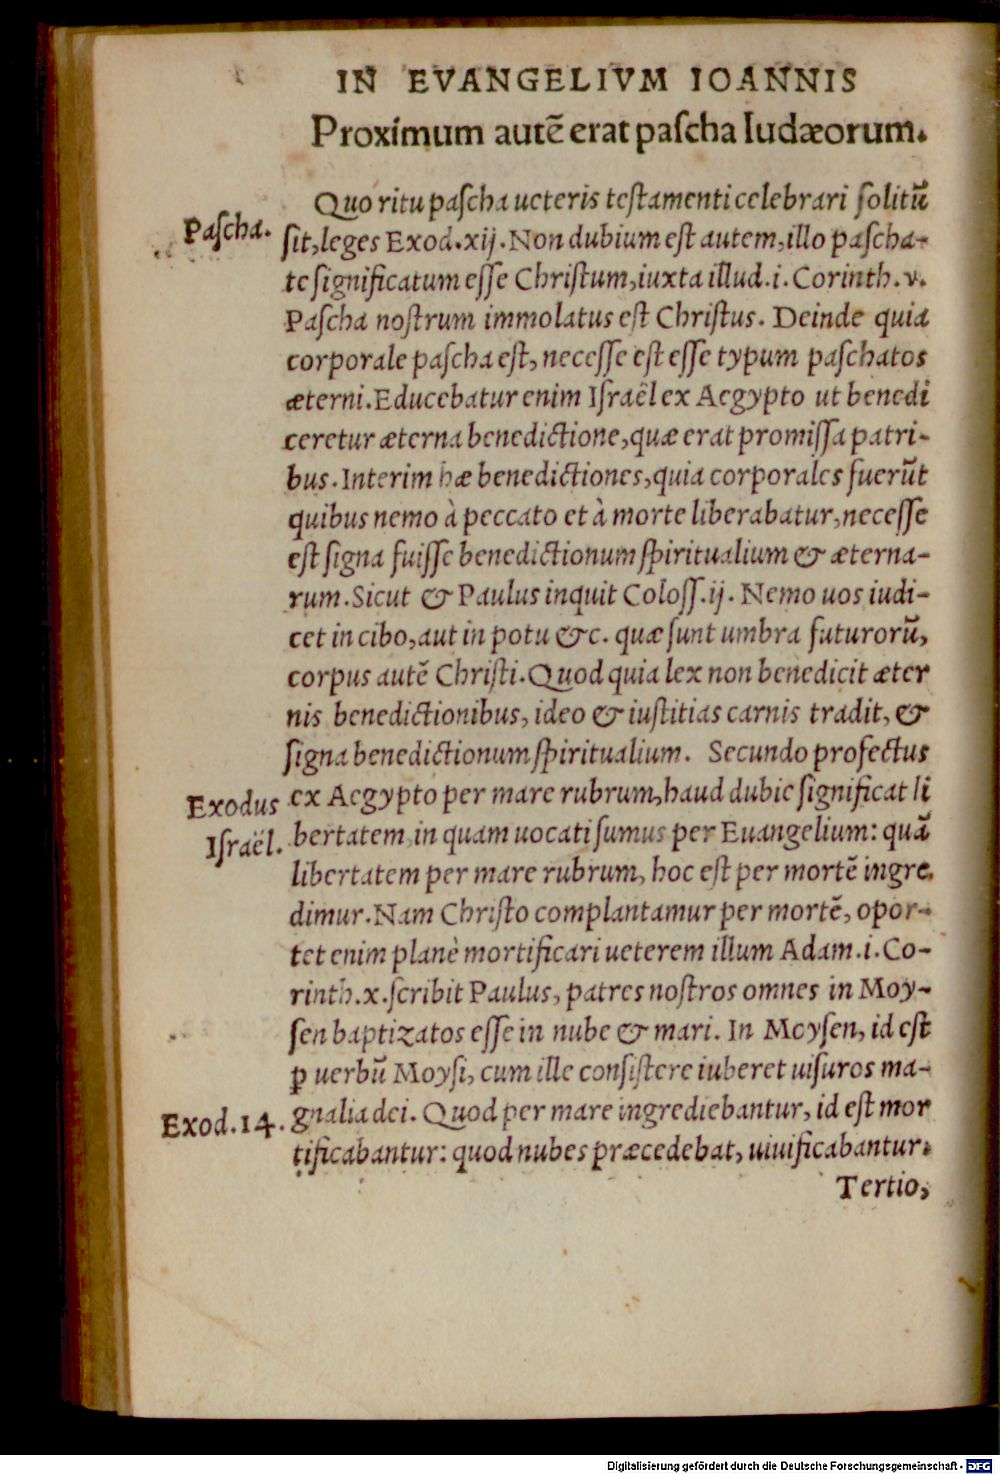 IN EVANGELIVM IOANNIS
Proximum autẽ erat paſcha Iudæorum.
Quo ritu paſcha ueteris teſtamenti celebrari ſolitũ
Paſcha.
ſit, leges Exod.xij. Non dubium eſt autem, illo paſcha-
te ſignificatum eſſe Chriſtum, iuxta illud.i.Corinth.v.
Paſcha noſtrum immolatus eſt Chriſtus. Deinde quia
corporale paſcha eſt, neceſſe eſt eſſe typum paſchatos
æterni. Educebatur enim Iſraël ex Aegypto ut benedi
ceretur æterna benedictione, quæ erat promiſſa patri-
bus. Interim hæ benedictiones, quia corporales fuerũt
quibus nemo à peccato et à morte liberabatur, neceſſe
eſt ſigna fuiſſe benedictionum ſpiritualium & æterna-
rum. Sicut & Paulus inquit Coloſſ.ij. Nemo uos iudi-
cet in cibo, aut in potu &c. quæ ſunt umbra futurorũ,
corpus autẽ Chriſti. Quod quia lex non benedicit æter
nis benedictionibus, ideo & iuſtitias carnis tradit, &
ſigna benedictionum ſpiritualium. Secundo profectus
Exodus
Iſraël.
ex Aegypto per mare rubrum, haud dubie ſignificat li
bertatem in quam uocati ſumus per Euangelium: quã
libertatem per mare rubrum, hoc eſt per mortẽ ingre.
dimur. Nam Chriſto complantamur per mortẽ, opor-
tet enim planè mortificari ueterem illum Adam.i.Co-
rinth.x.ſcribit Paulus, patres noſtros omnes in Moy-
ſen baptizatos eſſe in nube & mari. In Moyſen, id eſt
ꝑ uerbũ Moyſi, cum ille conſiſtere iuberet uiſuros ma-
Exod.14.
gnalia dei. Quod per mare ingrediebantur, id eſt mor
tificabantur: quod nubes præcedebat, uiuificabantur.
Tertio,
Digitalisierung gefördert durch die Deutsche Forschungsgemeinschaft - DFG